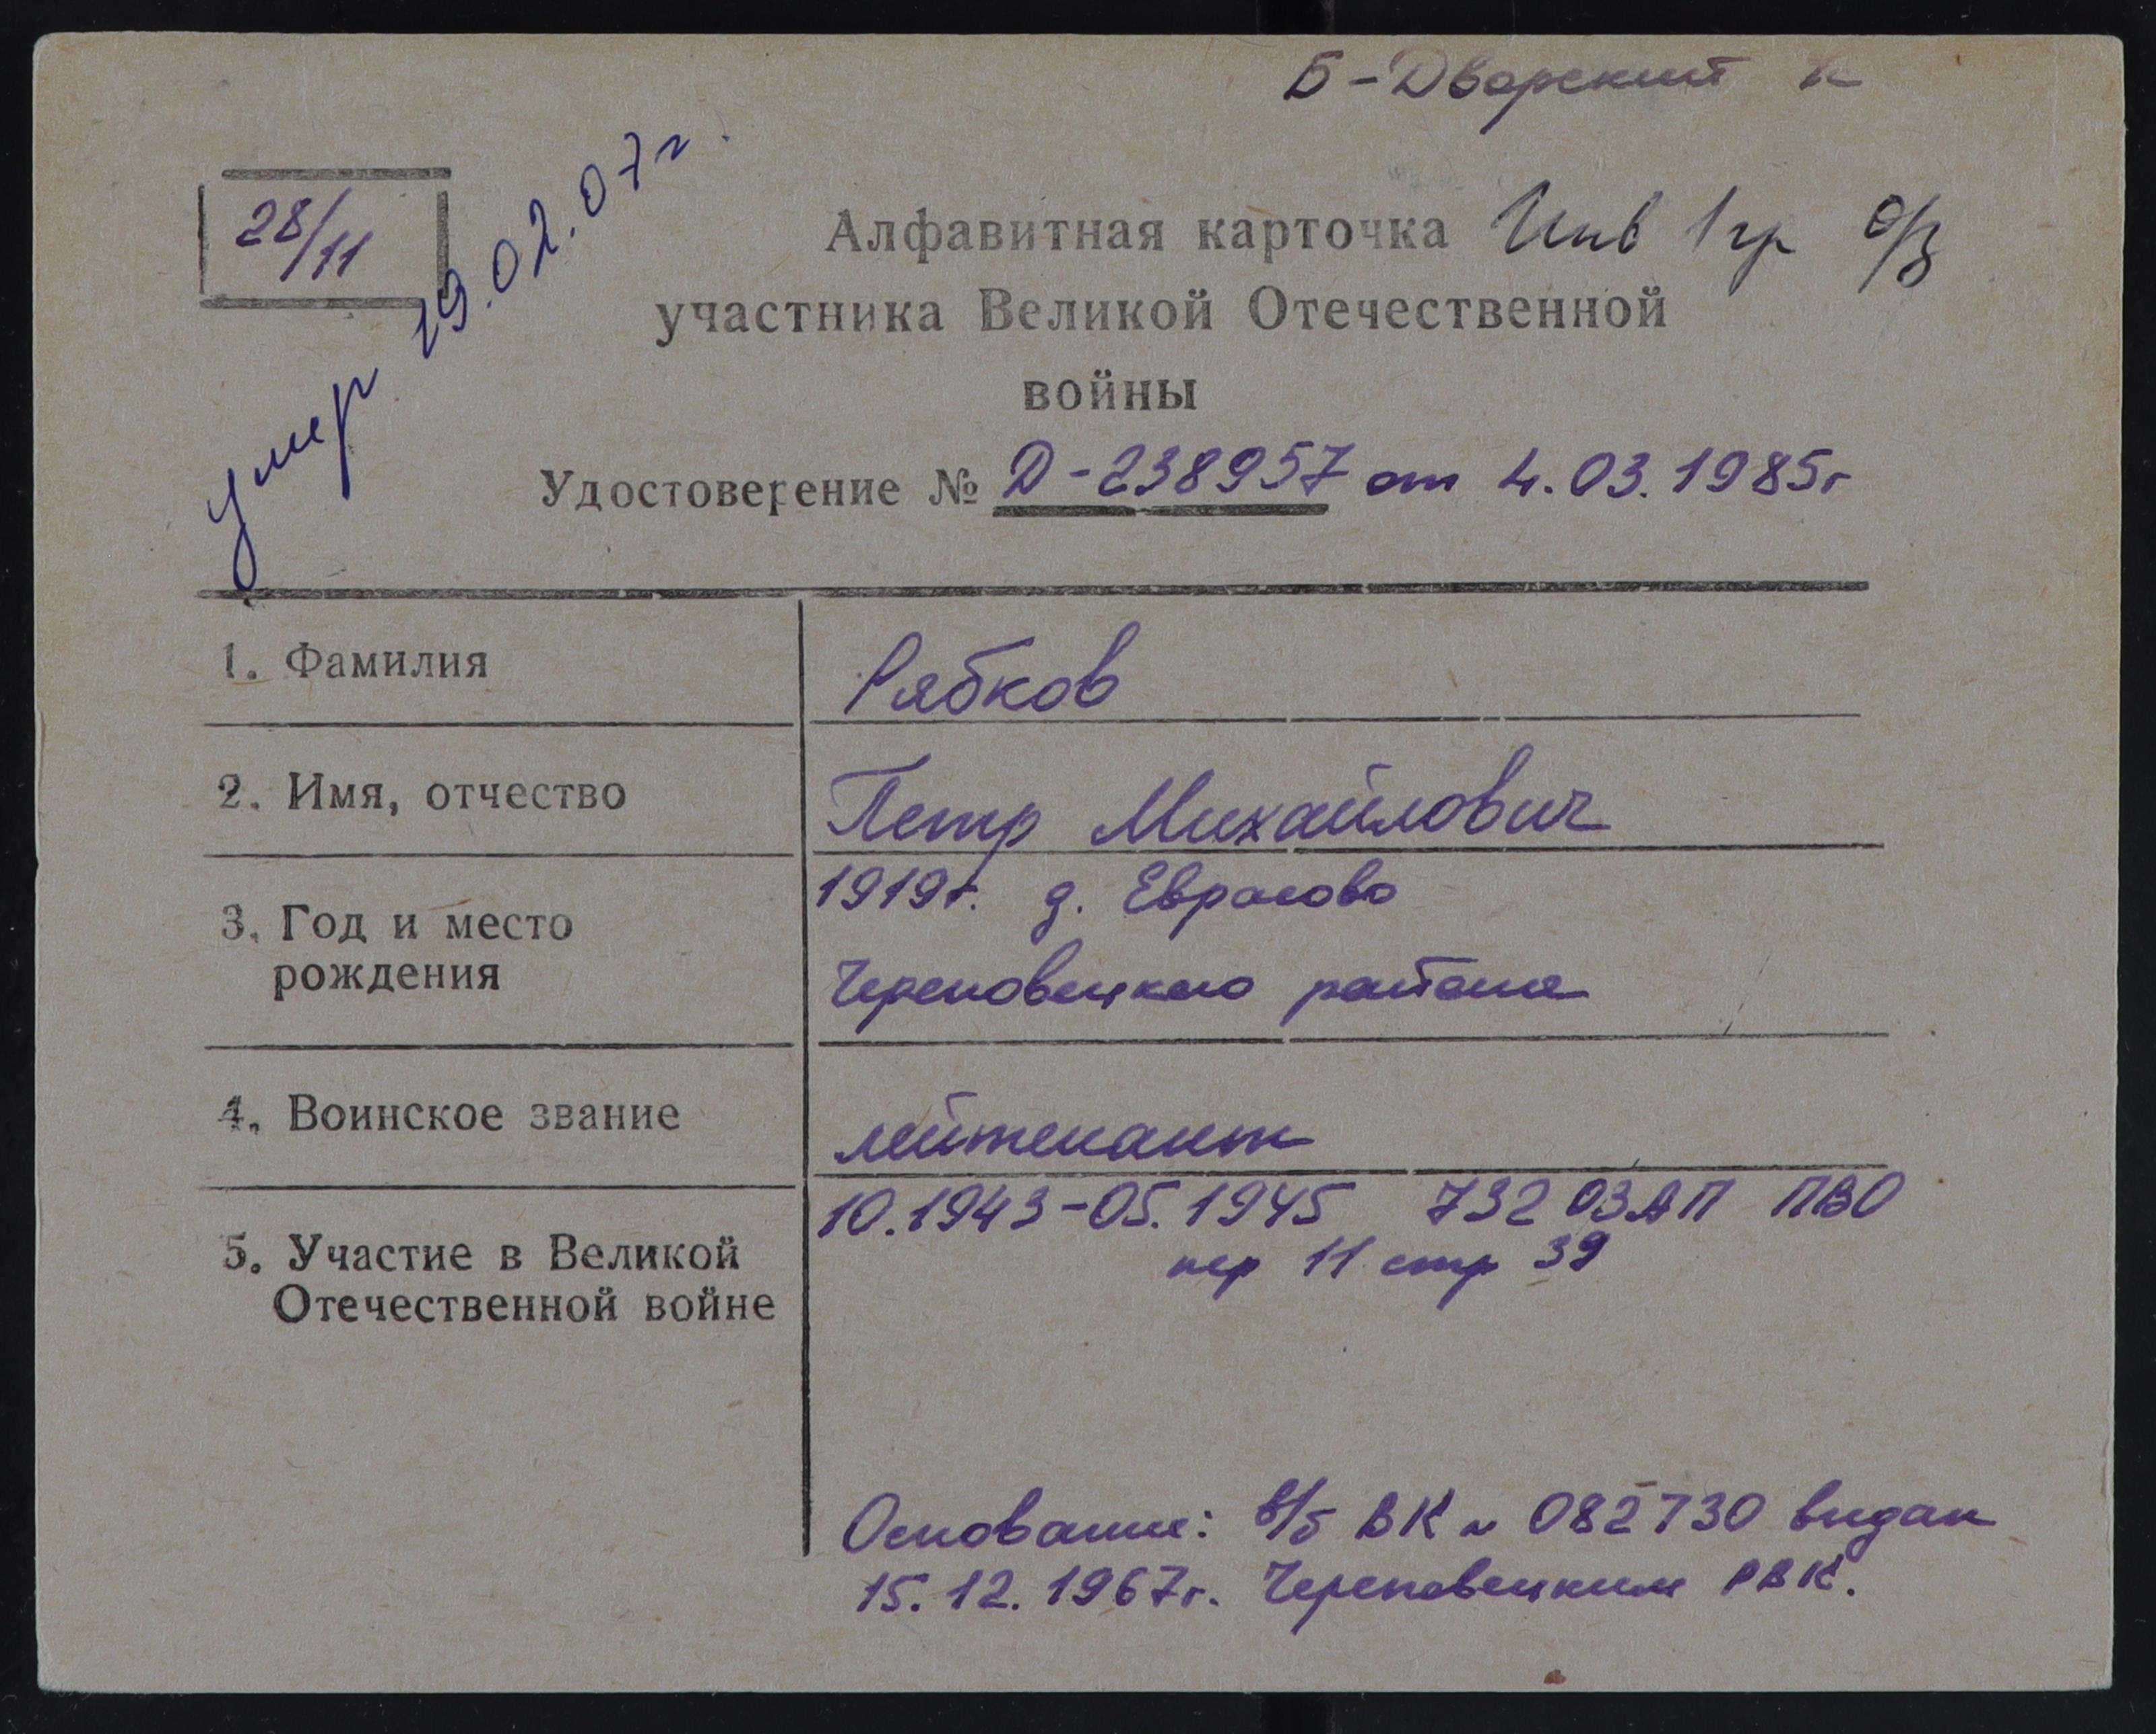 Б-Дворский
28/11
умер 19.02.07г.
Алфавитная карточка Инв 1 гр о/з
участника Великой Отечественной
войны
Удостоверение № Д-238957 от 4.03.1985г
1. Фамилия Рябков
2. Имя, отчество Петр Михайлович
3. Год и место 1919г. д.
рождения Череповецкого района
4. Воинское звание лейтенант
5. Участие в Великой 10.1943-05.1945 732 ОЗАП ПВО
Отечественной войне пер 11 стр 39
Основание: в/б ВК № 082730 выдан
15.12.1967г. Череповецким РВК.